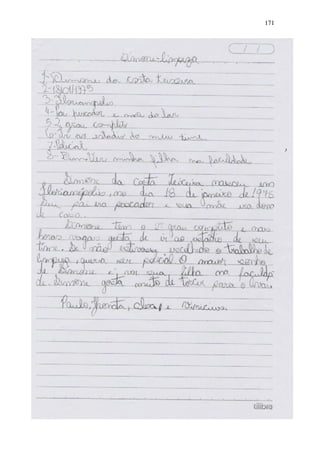 171
Simone - limpeza
1- Simone da costa teixeira
2- 18/01/1975
3- Florianopolis
4- foi pescador e mae do lar
5- 2 grau completo
6- ir ao estadio do meu time
7- Policial
8- minha filha na faculdade
Simone da Costa Teixeira nasceu em
Florianópolis, no dia 18 de janeiro de 1975
Seu pai era pescador e sua mãe era dona
de casa.
Simone tem o 2º grau completo e nas
horas vagas gosta de ir ao estadio de seu
time. Se não estivesse escolhido o trabalho de
limpeza, queria ser policial. O maior sonho
de Simone é ver sua filha na faculda
de. Simone gosta muito de torcer para o Avaí
Paulo, e Vinicius
tilibra